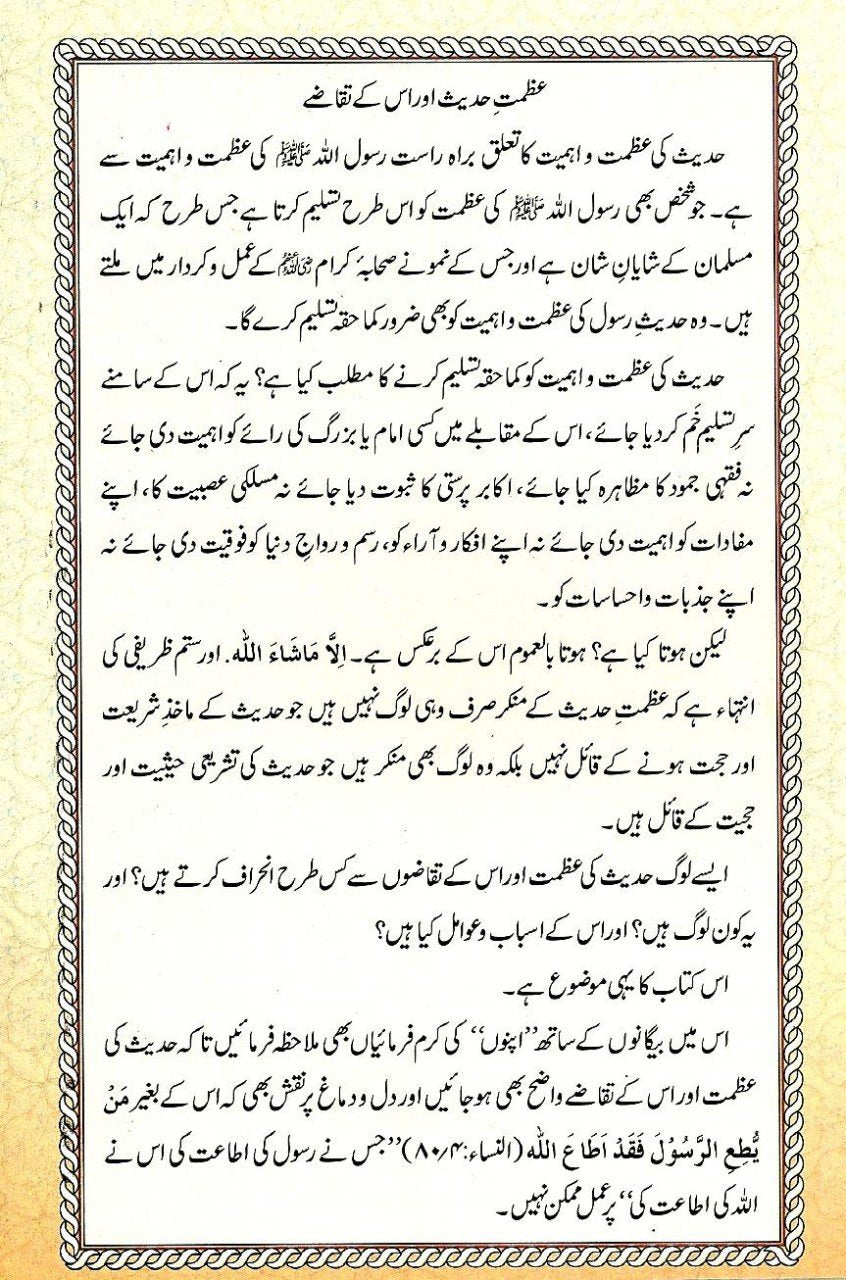 عظمتِ حدیث اور اس کے تقاضے
حدیث کی عظمت و اہمیت کا تعلق براہ راست رسول اللہ ﷺ کی عظمت و اہمیت سے
ہے۔ جو شخص بھی رسول اللہ ﷺ کی عظمت کو اس طرح تسلیم کرتا ہے جس طرح کہ ایک
مسلمان کے شایانِ شان ہے اور جس کے نمونے صحابۂ کرام رضی اللہ عنہم کے عمل و کردار میں ملتے
ہیں۔ وہ حدیثِ رسول کی عظمت و اہمیت کو بھی ضرور کما حقہ تسلیم کرے گا۔
حدیث کی عظمت و اہمیت کو کما حقہ تسلیم کرنے کا مطلب کیا ہے؟ یہ کہ اس کے سامنے
سرِ تسلیم خَم کر دیا جائے، اس کے مقابلے میں کسی امام یا بزرگ کی رائے کو اہمیت دی جائے
نہ فقہی جمود کا مظاہرہ کیا جائے، اکابر پرستی کا ثبوت دیا جائے نہ مسلکی عصبیت کا، اپنے
مفادات کو اہمیت دی جائے نہ اپنے افکار و آراء کو، رسم و رواجِ دنیا کو فوقیت دی جائے نہ
اپنے جذبات و احساسات کو۔
لیکن ہوتا کیا ہے؟ ہوتا بالعموم اس کے برعکس ہے۔ اِلَّا مَاشَاءَ اللہ. اور ستم ظریفی کی
انتہاء ہے کہ عظمتِ حدیث کے منکر صرف وہی لوگ نہیں ہیں جو حدیث کے ماخذِ شریعت
اور حجت ہونے کے قائل نہیں بلکہ وہ لوگ بھی منکر ہیں جو حدیث کی تشریعی حیثیت اور
حجیت کے قائل ہیں۔
ایسے لوگ حدیث کی عظمت اور اس کے تقاضوں سے کس طرح انحراف کرتے ہیں؟ اور
یہ کون لوگ ہیں؟ اور اس کے اسباب و عوامل کیا ہیں؟
اس کتاب کا یہی موضوع ہے۔
اس میں بیگانوں کے ساتھ ’’اپنوں‘‘ کی کرم فرمائیاں بھی ملاحظہ فرمائیں تاکہ حدیث کی
عظمت اور اس کے تقاضے واضح بھی ہو جائیں اور دل و دماغ پر نقش بھی کہ اس کے بغیر مَنْ
یُّطِعِ الرَّسُوْلَ فَقَدْ اَطَاعَ اللہ (النساء:۸۰/۴) ’’جس نے رسول کی اطاعت کی اس نے
اللہ کی اطاعت کی‘‘ پر عمل ممکن نہیں۔